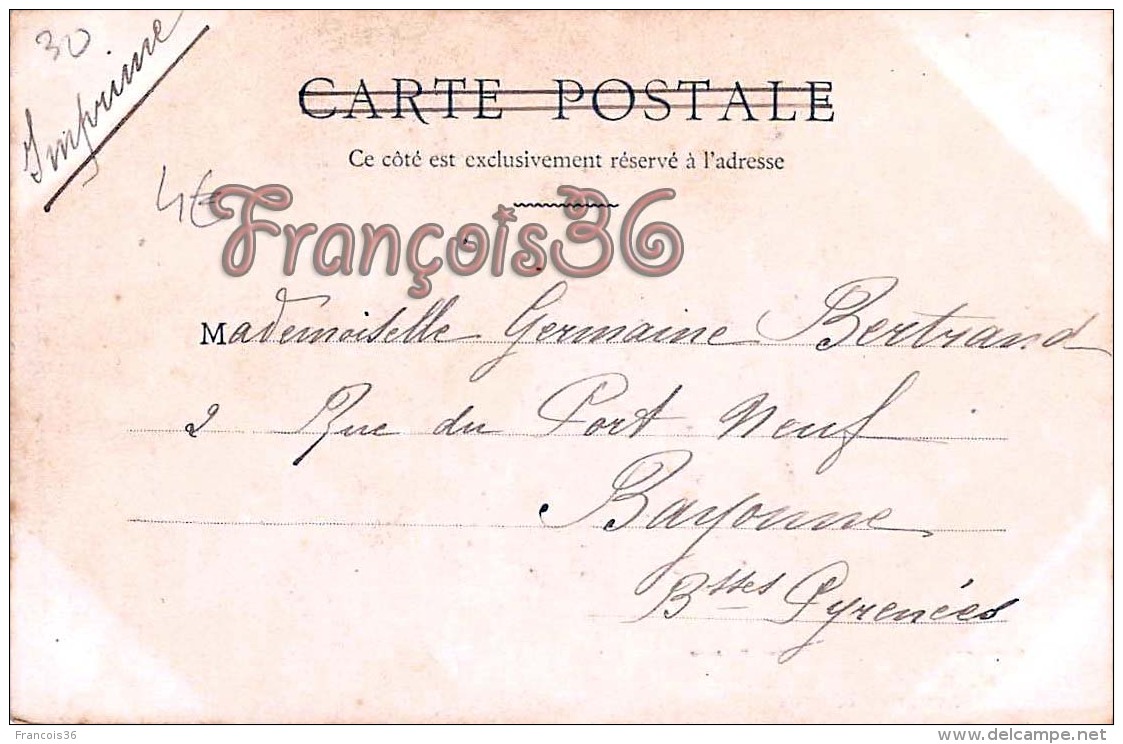 30
Imprimé
CARTE POSTALE
Ce côté est exclusivement réservé à l'adresse
4€
François36
Mademoiselle Germaine Bertrand
2 Rue du Port Neuf
Bayonne
Bsses Pyrenées
Francois36
www.delcampe.net